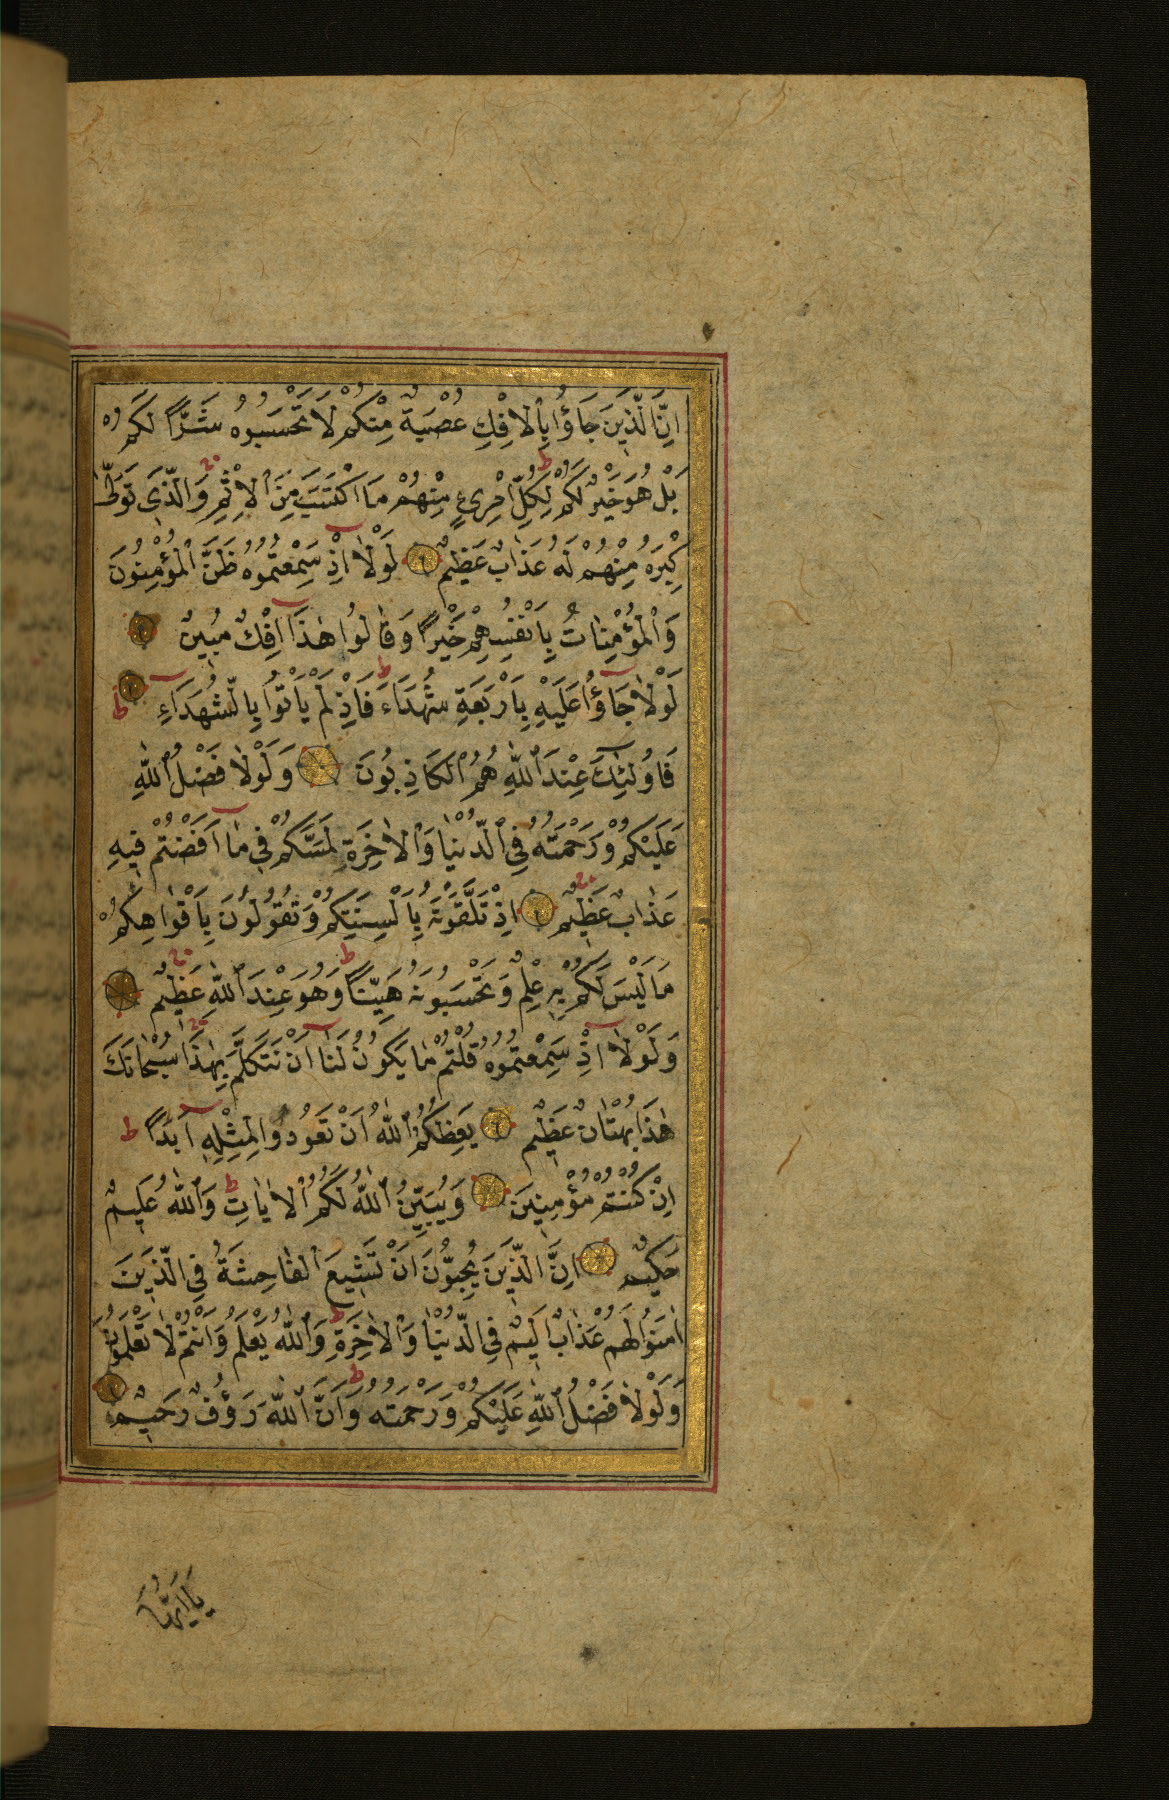 اِنَّ الَّذِينَ جَاؤُا بِالْاِفْكِ عُصْبَةٌ مِنْكُمْ لَا تَحْسَبُوهُ شَرًّا لَكُمْ
بَلْ هُوَ خَيْرٌ لَكُمْ لِكُلِّ امْرِئٍ مِنْهُمْ مَا اكْتَسَبَ مِنَ الْاِثْمِ وَالَّذِي تَوَلّٰى
كِبْرَهُ مِنْهُمْ لَهُ عَذَابٌ عَظِيمٌ لَوْلَا اِذْ سَمِعْتُمُوهُ ظَنَّ الْمُؤْمِنُونَ
وَالْمُؤْمِنَاتُ بِاَنْفُسِهِمْ خَيْرًا وَقَالُوا هٰذَا اِفْكٌ مُبِينٌ
لَوْلَا جَاؤُا عَلَيْهِ بِاَرْبَعَةِ شُهَدَاءَ فَاِذْ لَمْ يَاْتُوا بِالشُّهَدَاءِ
فَاُولٰئِكَ عِنْدَ اللّٰهِ هُمُ الْكَاذِبُونَ وَلَوْلَا فَضْلُ اللّٰهِ
عَلَيْكُمْ وَرَحْمَتُهُ فِي الدُّنْيَا وَالْاٰخِرَةِ لَمَسَّكُمْ فِي مَا اَفَضْتُمْ فِيهِ
عَذَابٌ عَظِيمٌ اِذْ تَلَقَّوْنَهُ بِاَلْسِنَتِكُمْ وَتَقُولُونَ بِاَفْوَاهِكُمْ
مَا لَيْسَ لَكُمْ بِهِ عِلْمٌ وَتَحْسَبُونَهُ هَيِّنًا وَهُوَ عِنْدَ اللّٰهِ عَظِيمٌ
وَلَوْلَا اِذْ سَمِعْتُمُوهُ قُلْتُمْ مَا يَكُونُ لَنَا اَنْ نَتَكَلَّمَ بِهٰذَا سُبْحَانَكَ
هٰذَا بُهْتَانٌ عَظِيمٌ يَعِظُكُمُ اللّٰهُ اَنْ تَعُودُوا لِمِثْلِهِ اَبَدًا
اِنْ كُنْتُمْ مُؤْمِنِينَ وَيُبَيِّنُ اللّٰهُ لَكُمُ الْاٰيَاتِ وَاللّٰهُ عَلِيمٌ
حَكِيمٌ اِنَّ الَّذِينَ يُحِبُّونَ اَنْ تَشِيعَ الْفَاحِشَةُ فِي الَّذِينَ
اٰمَنُوا لَهُمْ عَذَابٌ اَلِيمٌ فِي الدُّنْيَا وَالْاٰخِرَةِ وَاللّٰهُ يَعْلَمُ وَاَنْتُمْ لَا تَعْلَمُونَ
وَلَوْلَا فَضْلُ اللّٰهِ عَلَيْكُمْ وَرَحْمَتُهُ وَاَنَّ اللّٰهَ رَؤُفٌ رَحِيمٌ
يَا اَيُّهَا